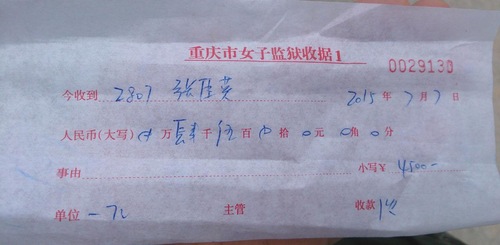 重庆市女子监狱收据1
0029130
今收到 2807 张佳英 2015年7月7日
人民币(大写) 0万肆千伍百0拾0元0角0分
事由 小写¥ 4500-
单位 一 主管 收款